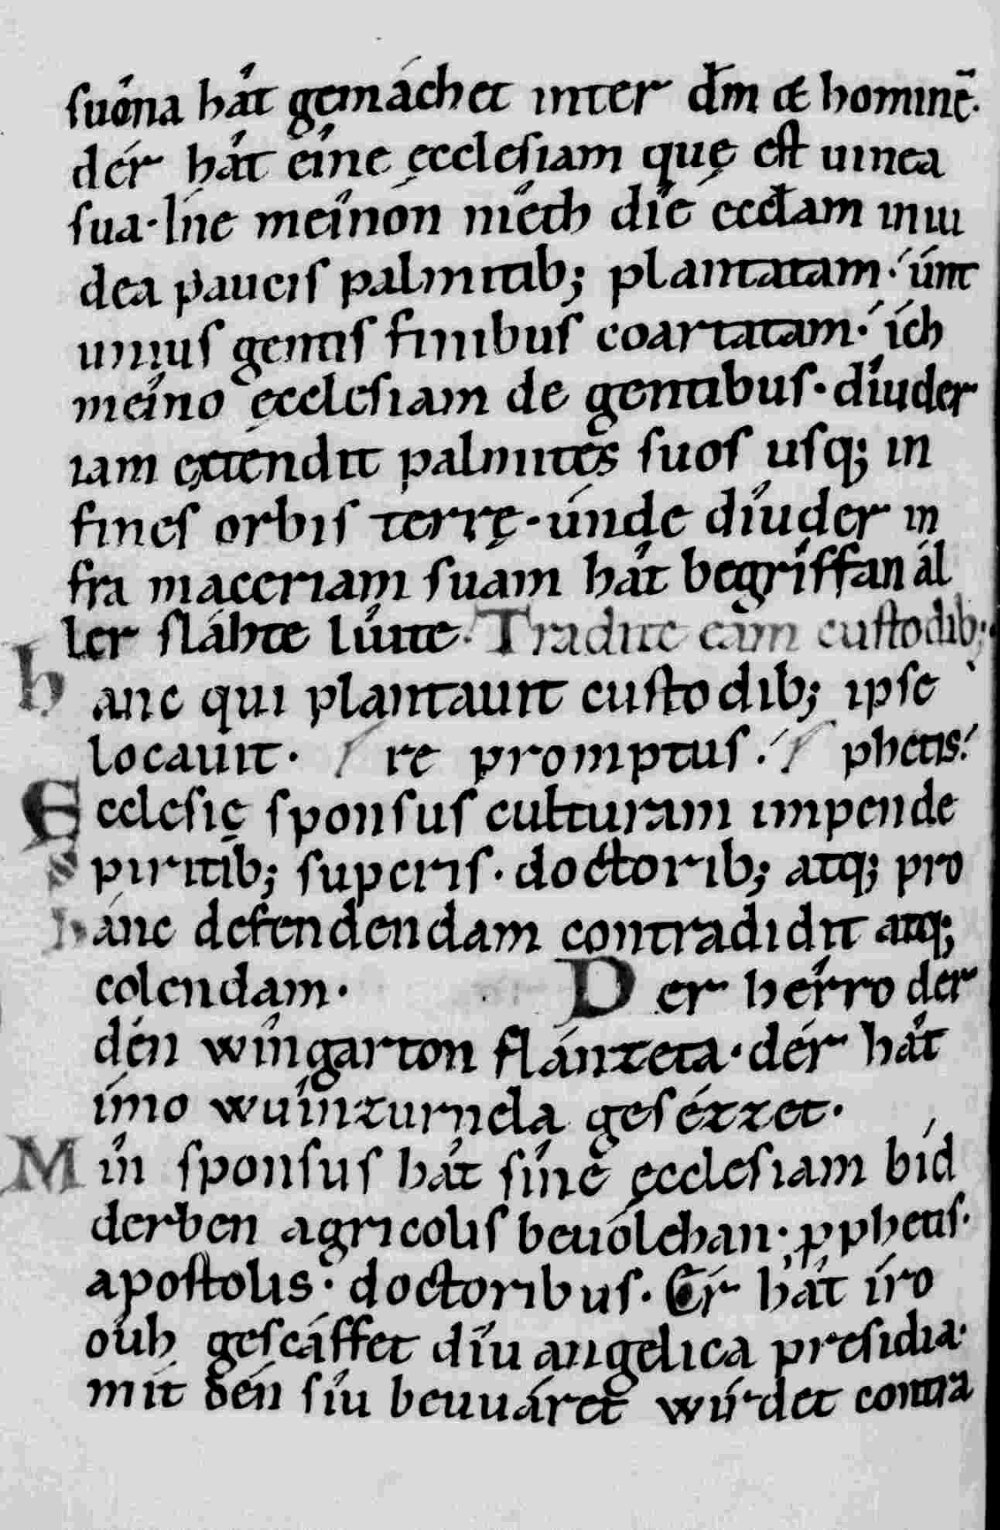 suóna hât gemáchet inter dm̄ & hominē·
dér hât eîne ęcclesiam quę est uinea
sua· Íne meînon nîeth dîe eccłam in iu
dea paucis palmitib; plantatam·' únt
unius gentis finibus coartatam·' ích
meîno ęcclesiam de gentibus· dîu der
iam extendit palmites suos usq; in
fines orbis terrę· únde dîu der in
fra maceriam suam hât begríffan ál
ler sláhte lûite· Tradite eam custodib;
hanc qui plantauit custodib; ipse
locauit· re promptus·' phetis·'
Ecclesię sponsus culturam impende
Spiritib; superis· doctorib; atq; pro
hánc defendendam contradidit atq;
colendam· Der hérro der
dén wîngarton flánzeta· dér hât
ímo wuînzurnela gesézzet·
Mîn sponsus hât sîne ęcclesiam bíd
derben agricolis beuólehan· ꝓphetis·
apostolis· doctoribus· Ér hât íro
oûh gescáffet dîu angelica presidia·
mit dén sîu beuuáret wírdet contra